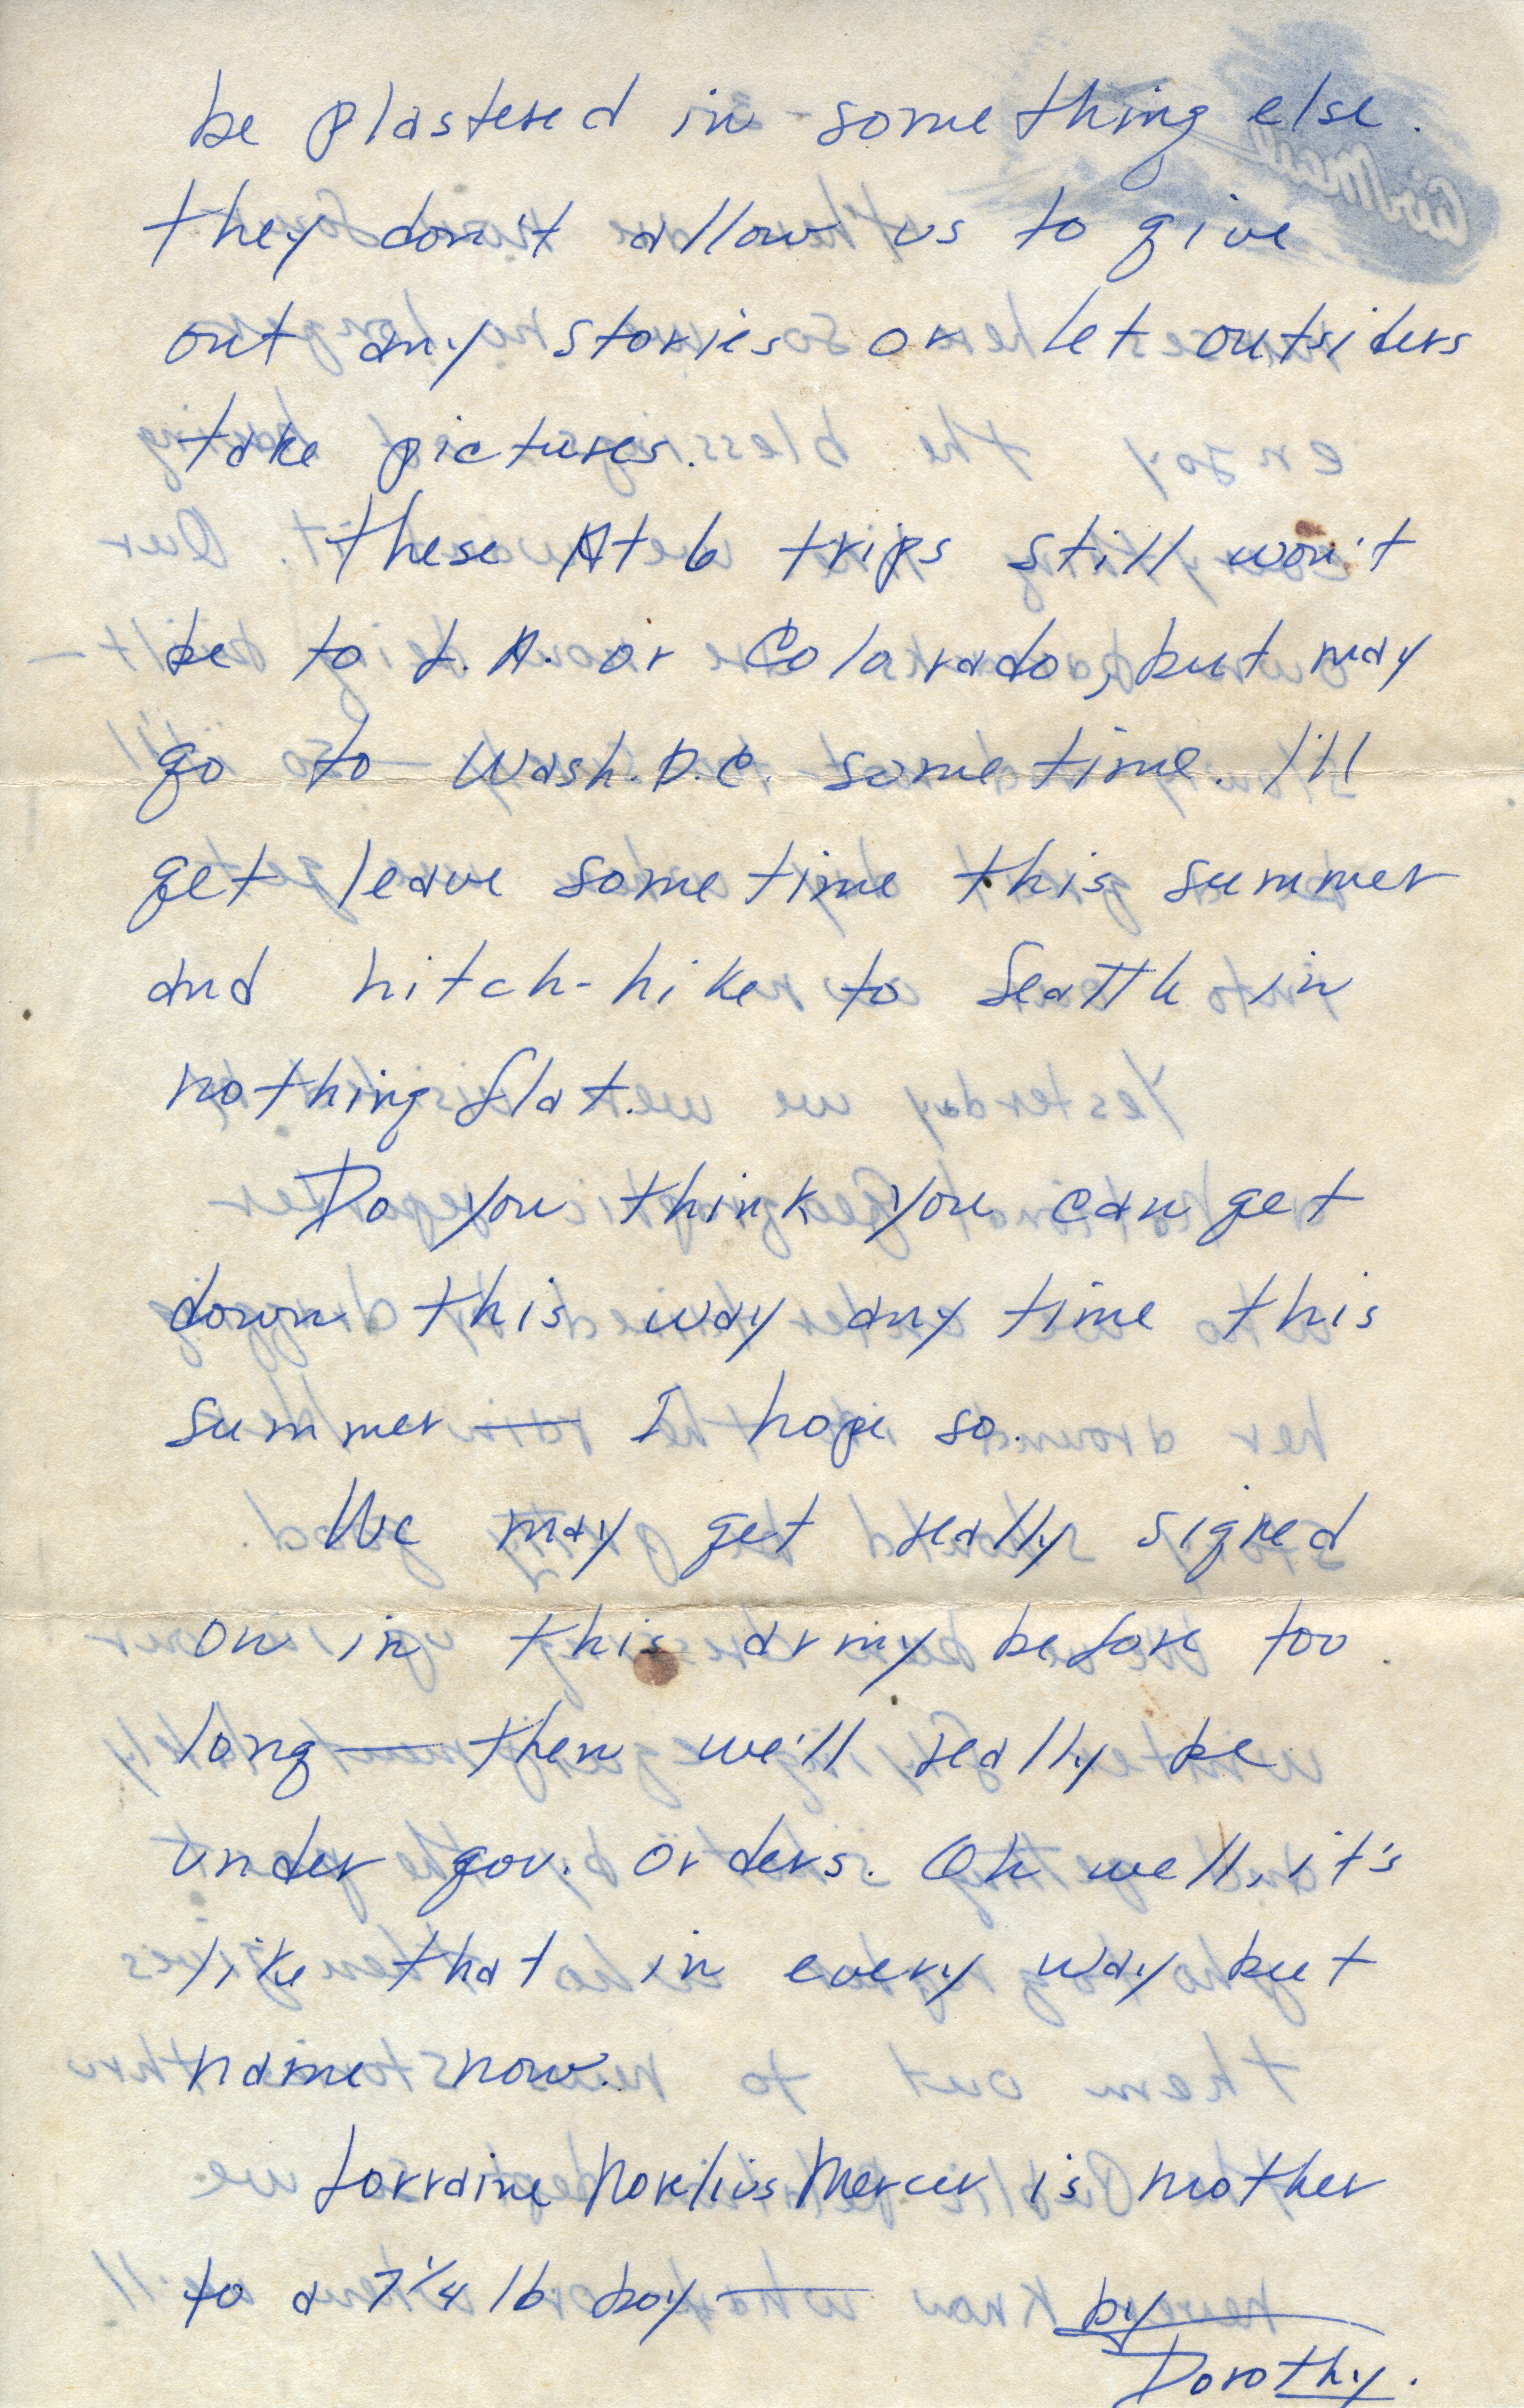 be plastered in something else.
they don't allow us to give
out any stories or let outsiders
take pictures.
These At 6 trips still won't
be to L.A. or Colarado, but may
go to Wash. D.C. sometime. I'll
get leave sometime this summer
and hitch-hike to Seattle in
nothing flat.
Do you think you can get
down this way any time this
summer — I hope so.
We may get really signed
on in this army before too
long — then we'll really be
under gov. orders. Oh well, it's
like that in every way but
name now.
Lorraine Norelius Mercer is mother
to a 7 1/4 lb boy —
by
Dorothy.
Air Mail